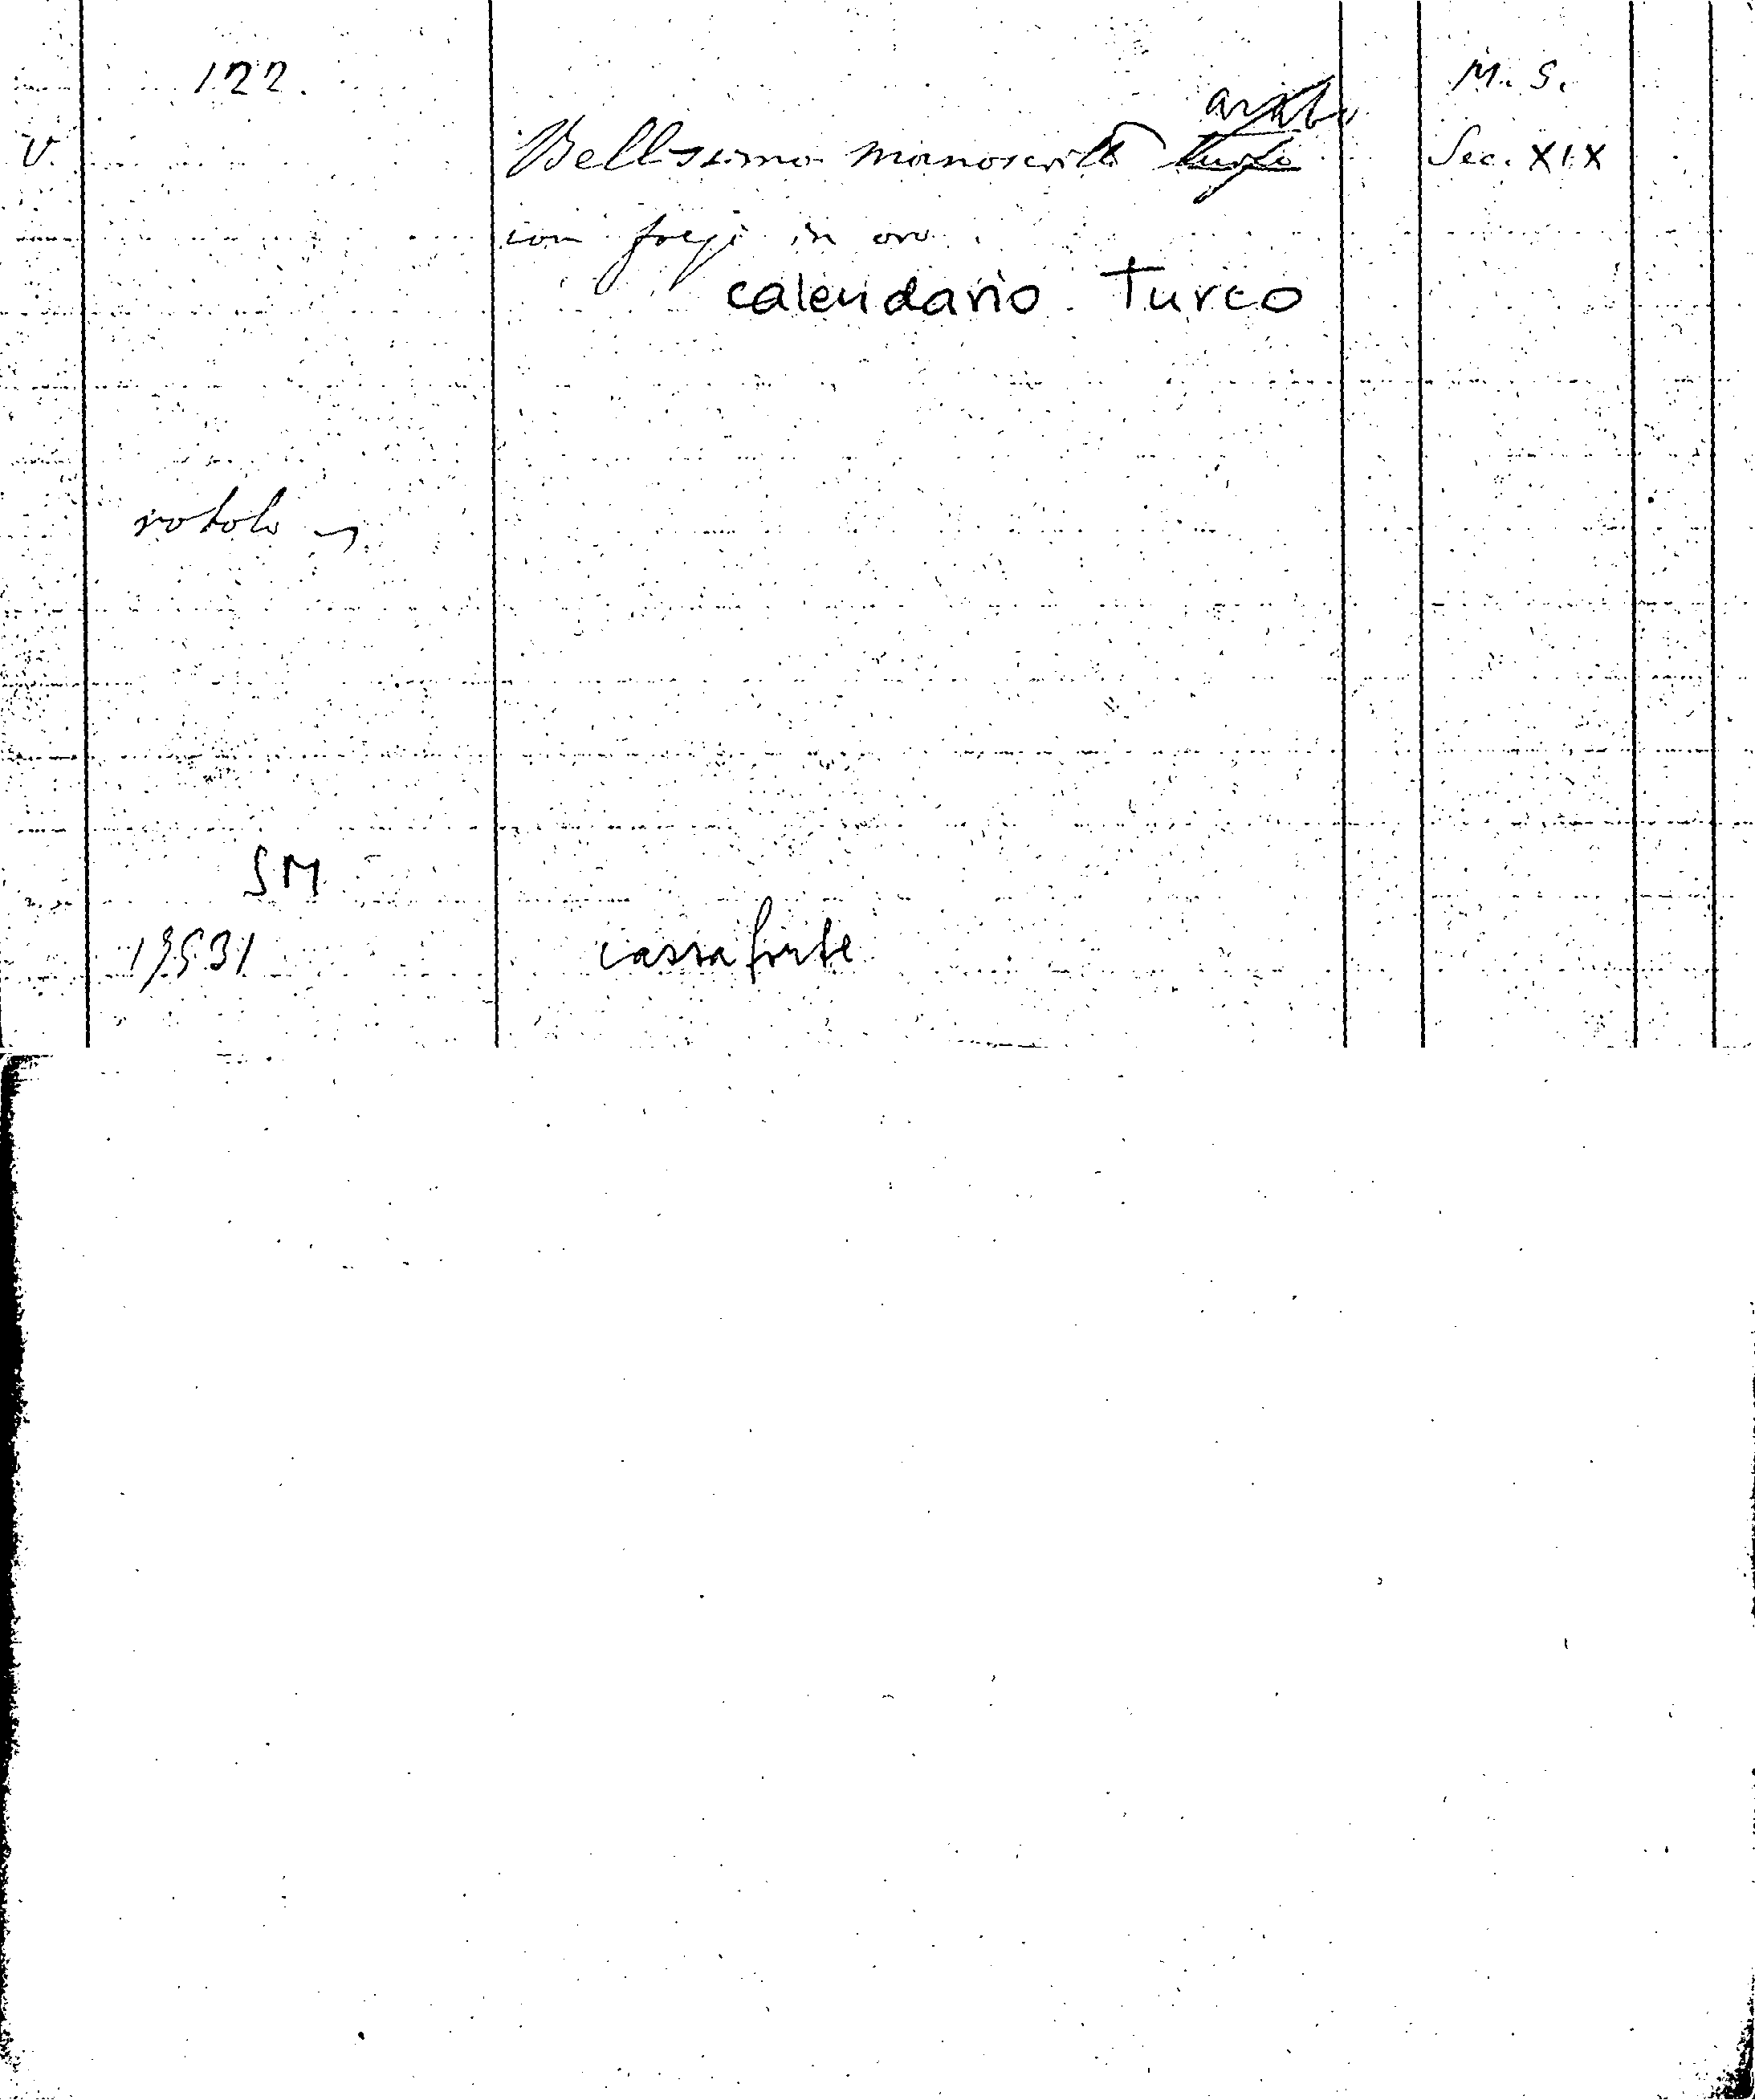 122. M. S.
arabo
V. Bellissimo manoscritto turco Sec. XIX
con fregi in oro.
calendario Turco
rotolo
SM
19531 cassaforte